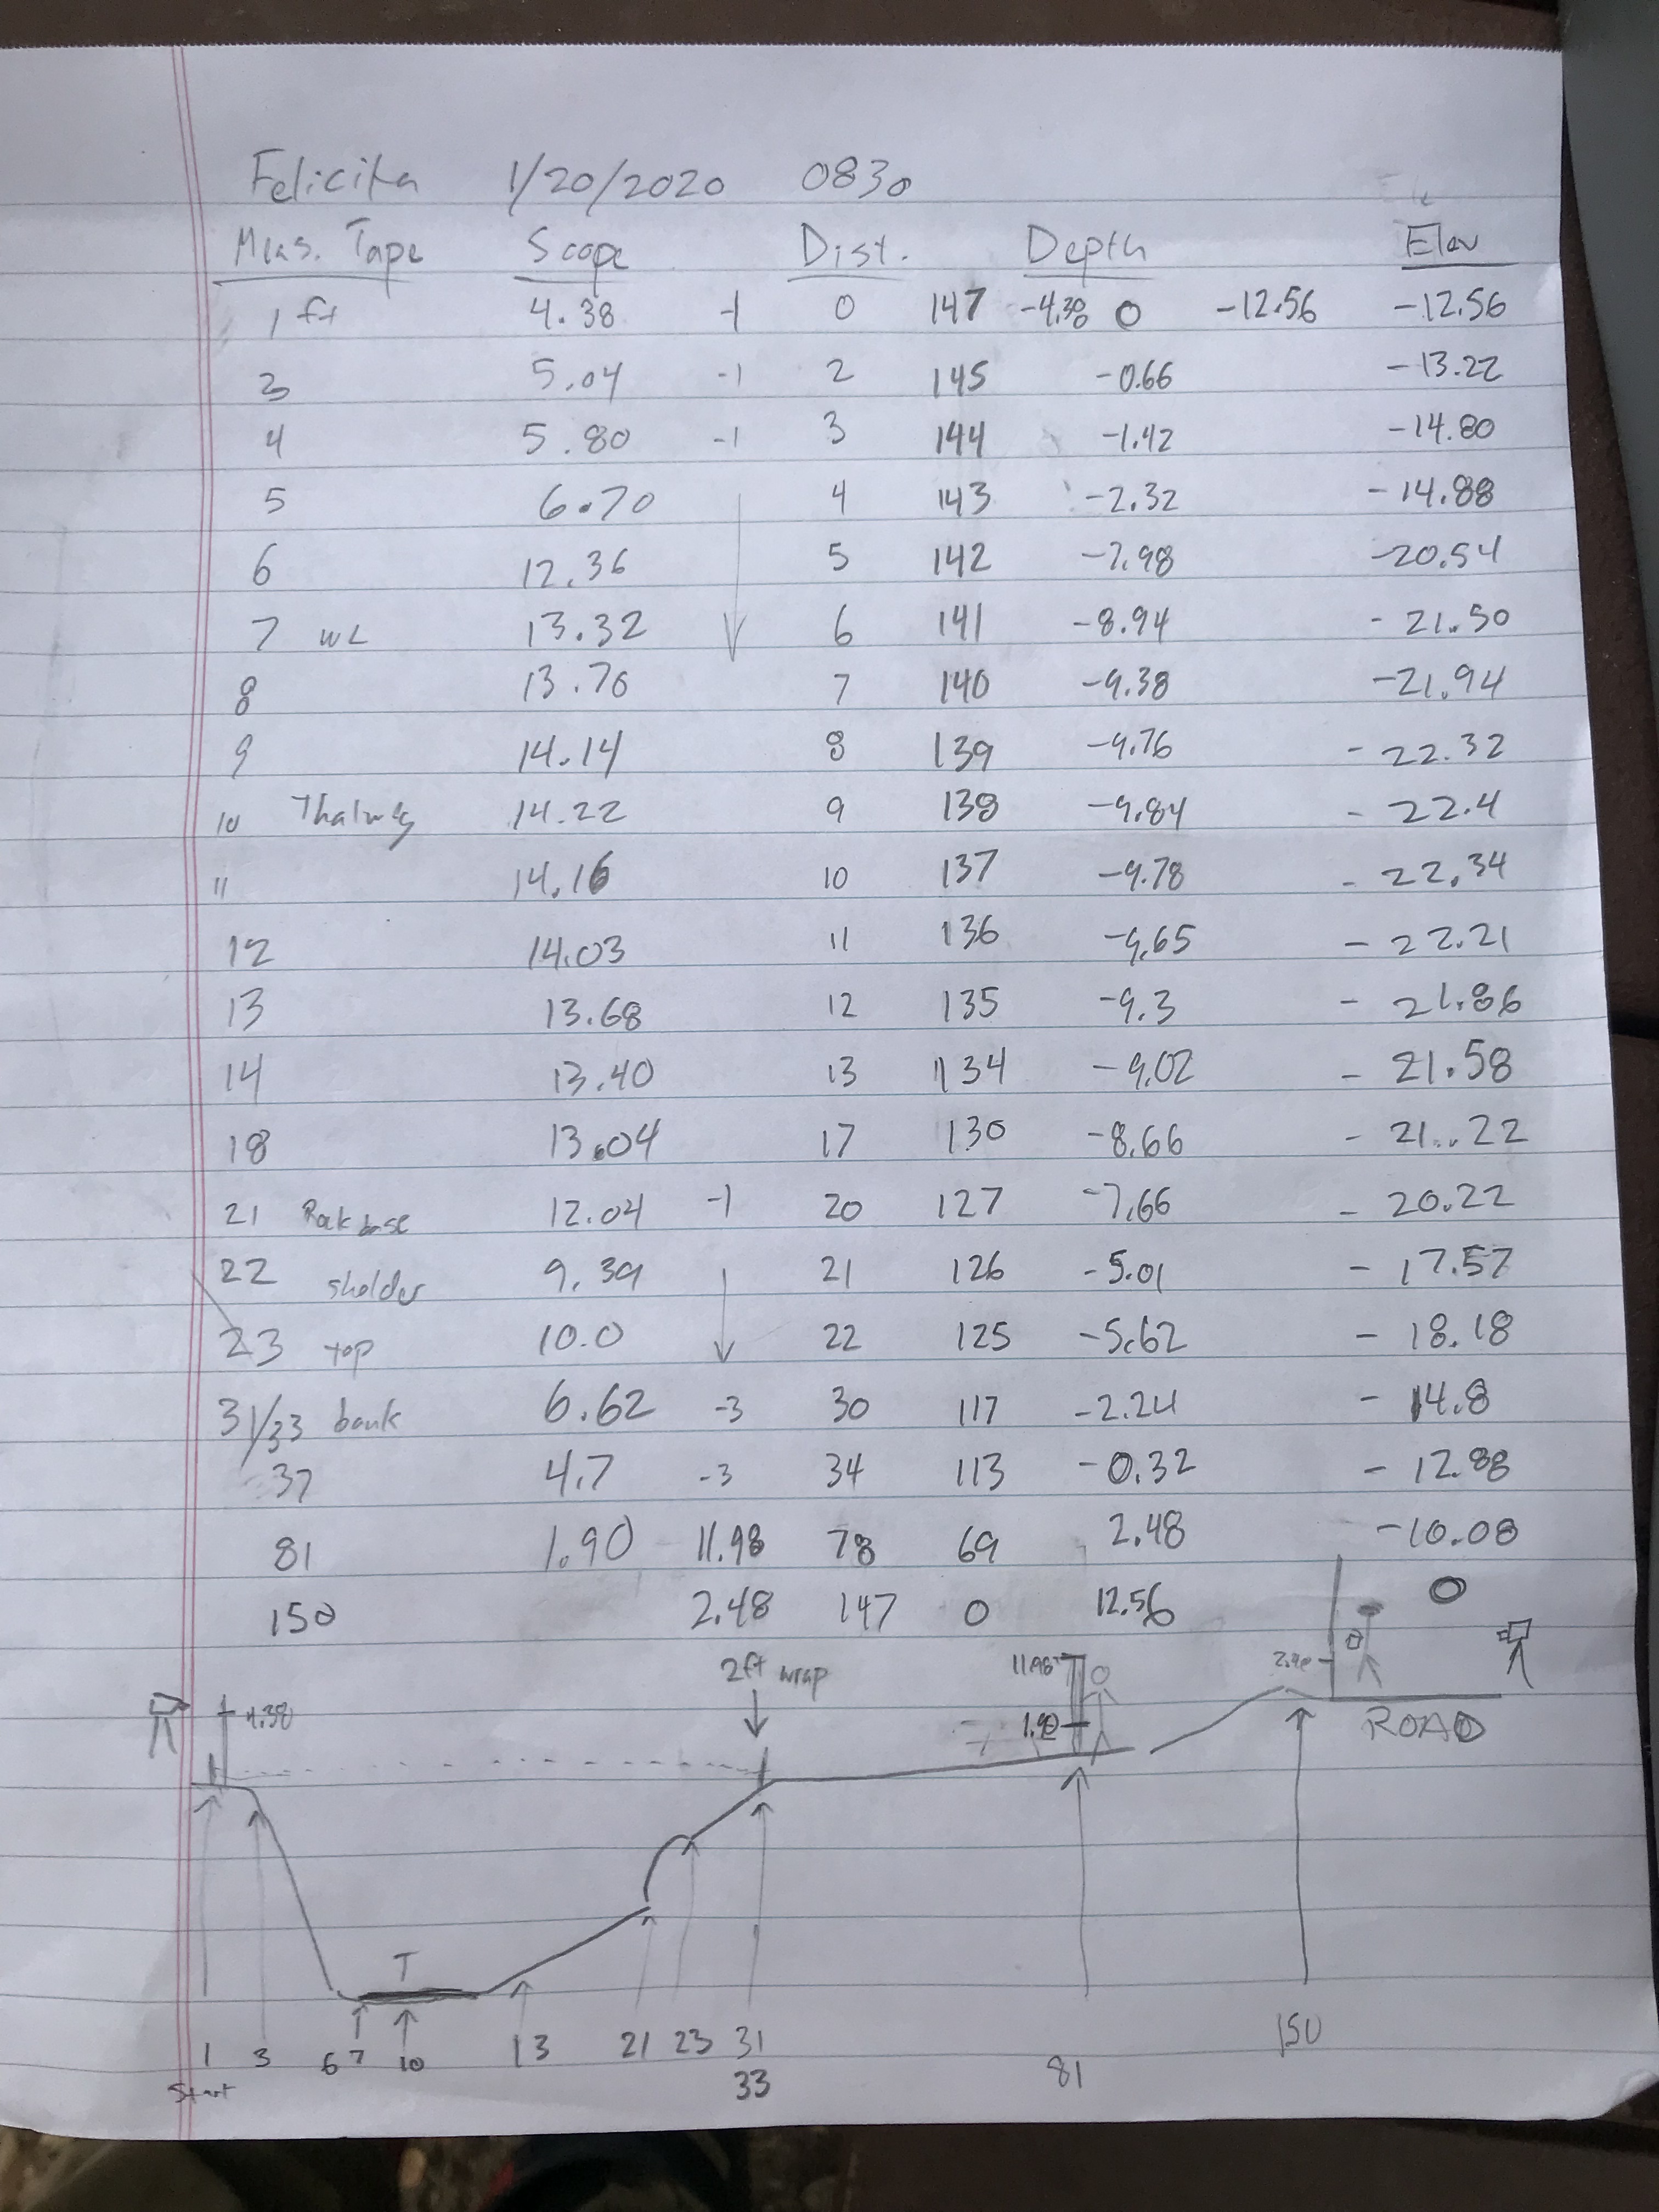 Felicita 1/20/2020 0830
Meas. Tape Scope Dist. Depth Elev
1 ft 4.38 -1 0 147 -4.38 0 -12.56 -12.56
3 5.04 -1 2 145 -0.66 -13.22
4 5.80 -1 3 144 -1.42 -14.80
5 6.70 4 143 -2.32 -14.88
6 12.36 5 142 -7.98 -20.54
7 WL 13.32 6 141 -8.94 -21.50
8 13.76 7 140 -9.38 -21.94
9 14.14 8 139 -9.76 -22.32
10 Thalweg 14.22 9 138 -9.84 -22.4
11 14.16 10 137 -9.78 -22.34
12 14.03 11 136 -9.65 -22.21
13 13.68 12 135 -9.3 -21.86
14 13.40 13 134 -9.02 -21.58
18 13.04 17 130 -8.66 -21..22
21 Rock base 12.04 -1 20 127 -7.66 -20.22
22 sholder 9.39 21 126 -5.01 -17.57
23 top 10.0 22 125 -5.62 -18.18
31/33 bank 6.62 -3 30 117 -2.24 -14.8
37 4.7 -3 34 113 -0.32 -12.88
81 1.90 11.98 78 69 2.48 -10.08
150 2.48 147 0 12.56 0
2ft wrap 11.98
4.38 1.90 ROAD
T
1 3 6 7 10 13 21 23 31 81 150
Start 33